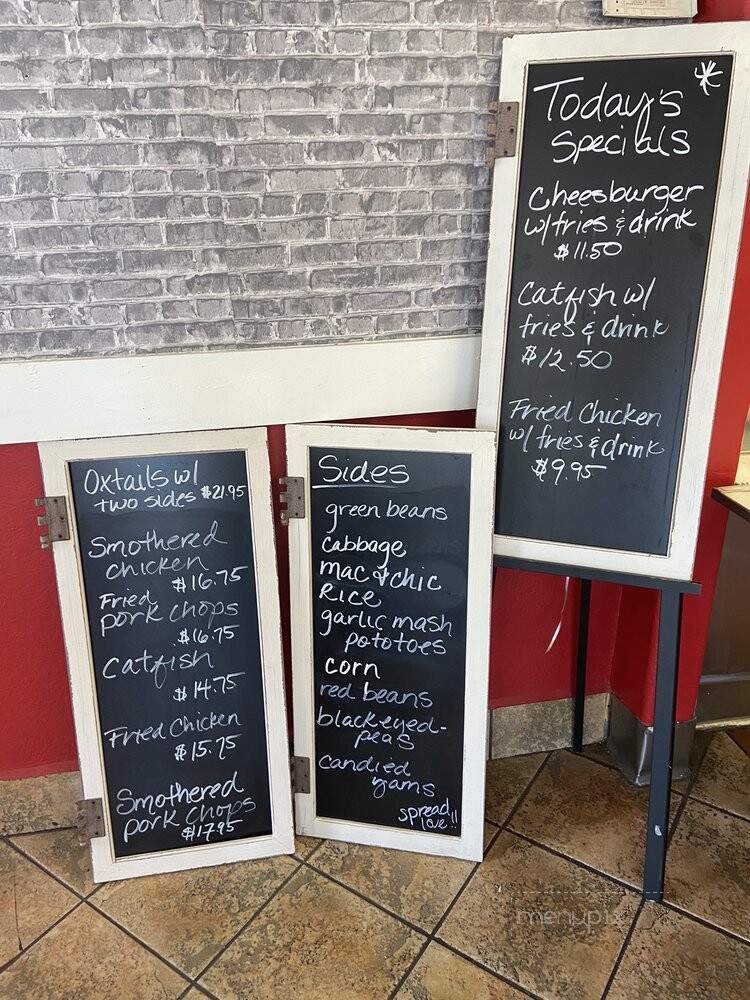 Oxtails w/
two sides $21.95
Smothered
chicken
$16.75
Fried
pork chops
$16.75
Catfish
$14.75
Fried Chicken
$15.75
Smothered
pork chops
$17.95
Sides
green beans
cabbage
mac & chic
Rice
garlic mash
pototoes
corn
red beans
blackeyed-
peas
candied
yams
spread
love!!
Today's
Specials
Cheesburger
w/fries & drink
$11.50
Catfish w/
fries & drink
$12.50
Fried Chicken
w/fries & drink
$9.95
menupix